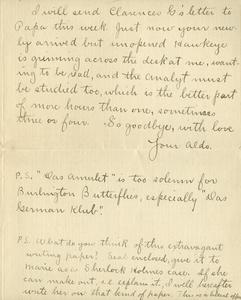 I will send Clarence G's letter to
Papa this week. Just now your new-
ly arrived but unopened Hawkeye
is grinning across the desk at me, want-
ing to be read, and the Analyst must
be studied too, which is the better part
of more hours than one, sometimes
three or four. So goodbye, with love
Your Aldo.
P.S. "Das Amulet" is too solemn for
Burlington Butterflies, especially "Das
German Klub".
P.S. What do you think of this extravagant
writing paper? Seal enclosed, give it to
Marie as a Sherlock Holmes case. If she
can make out, i.e. explain it, I will hereafter
write her on that kind of paper. This is a